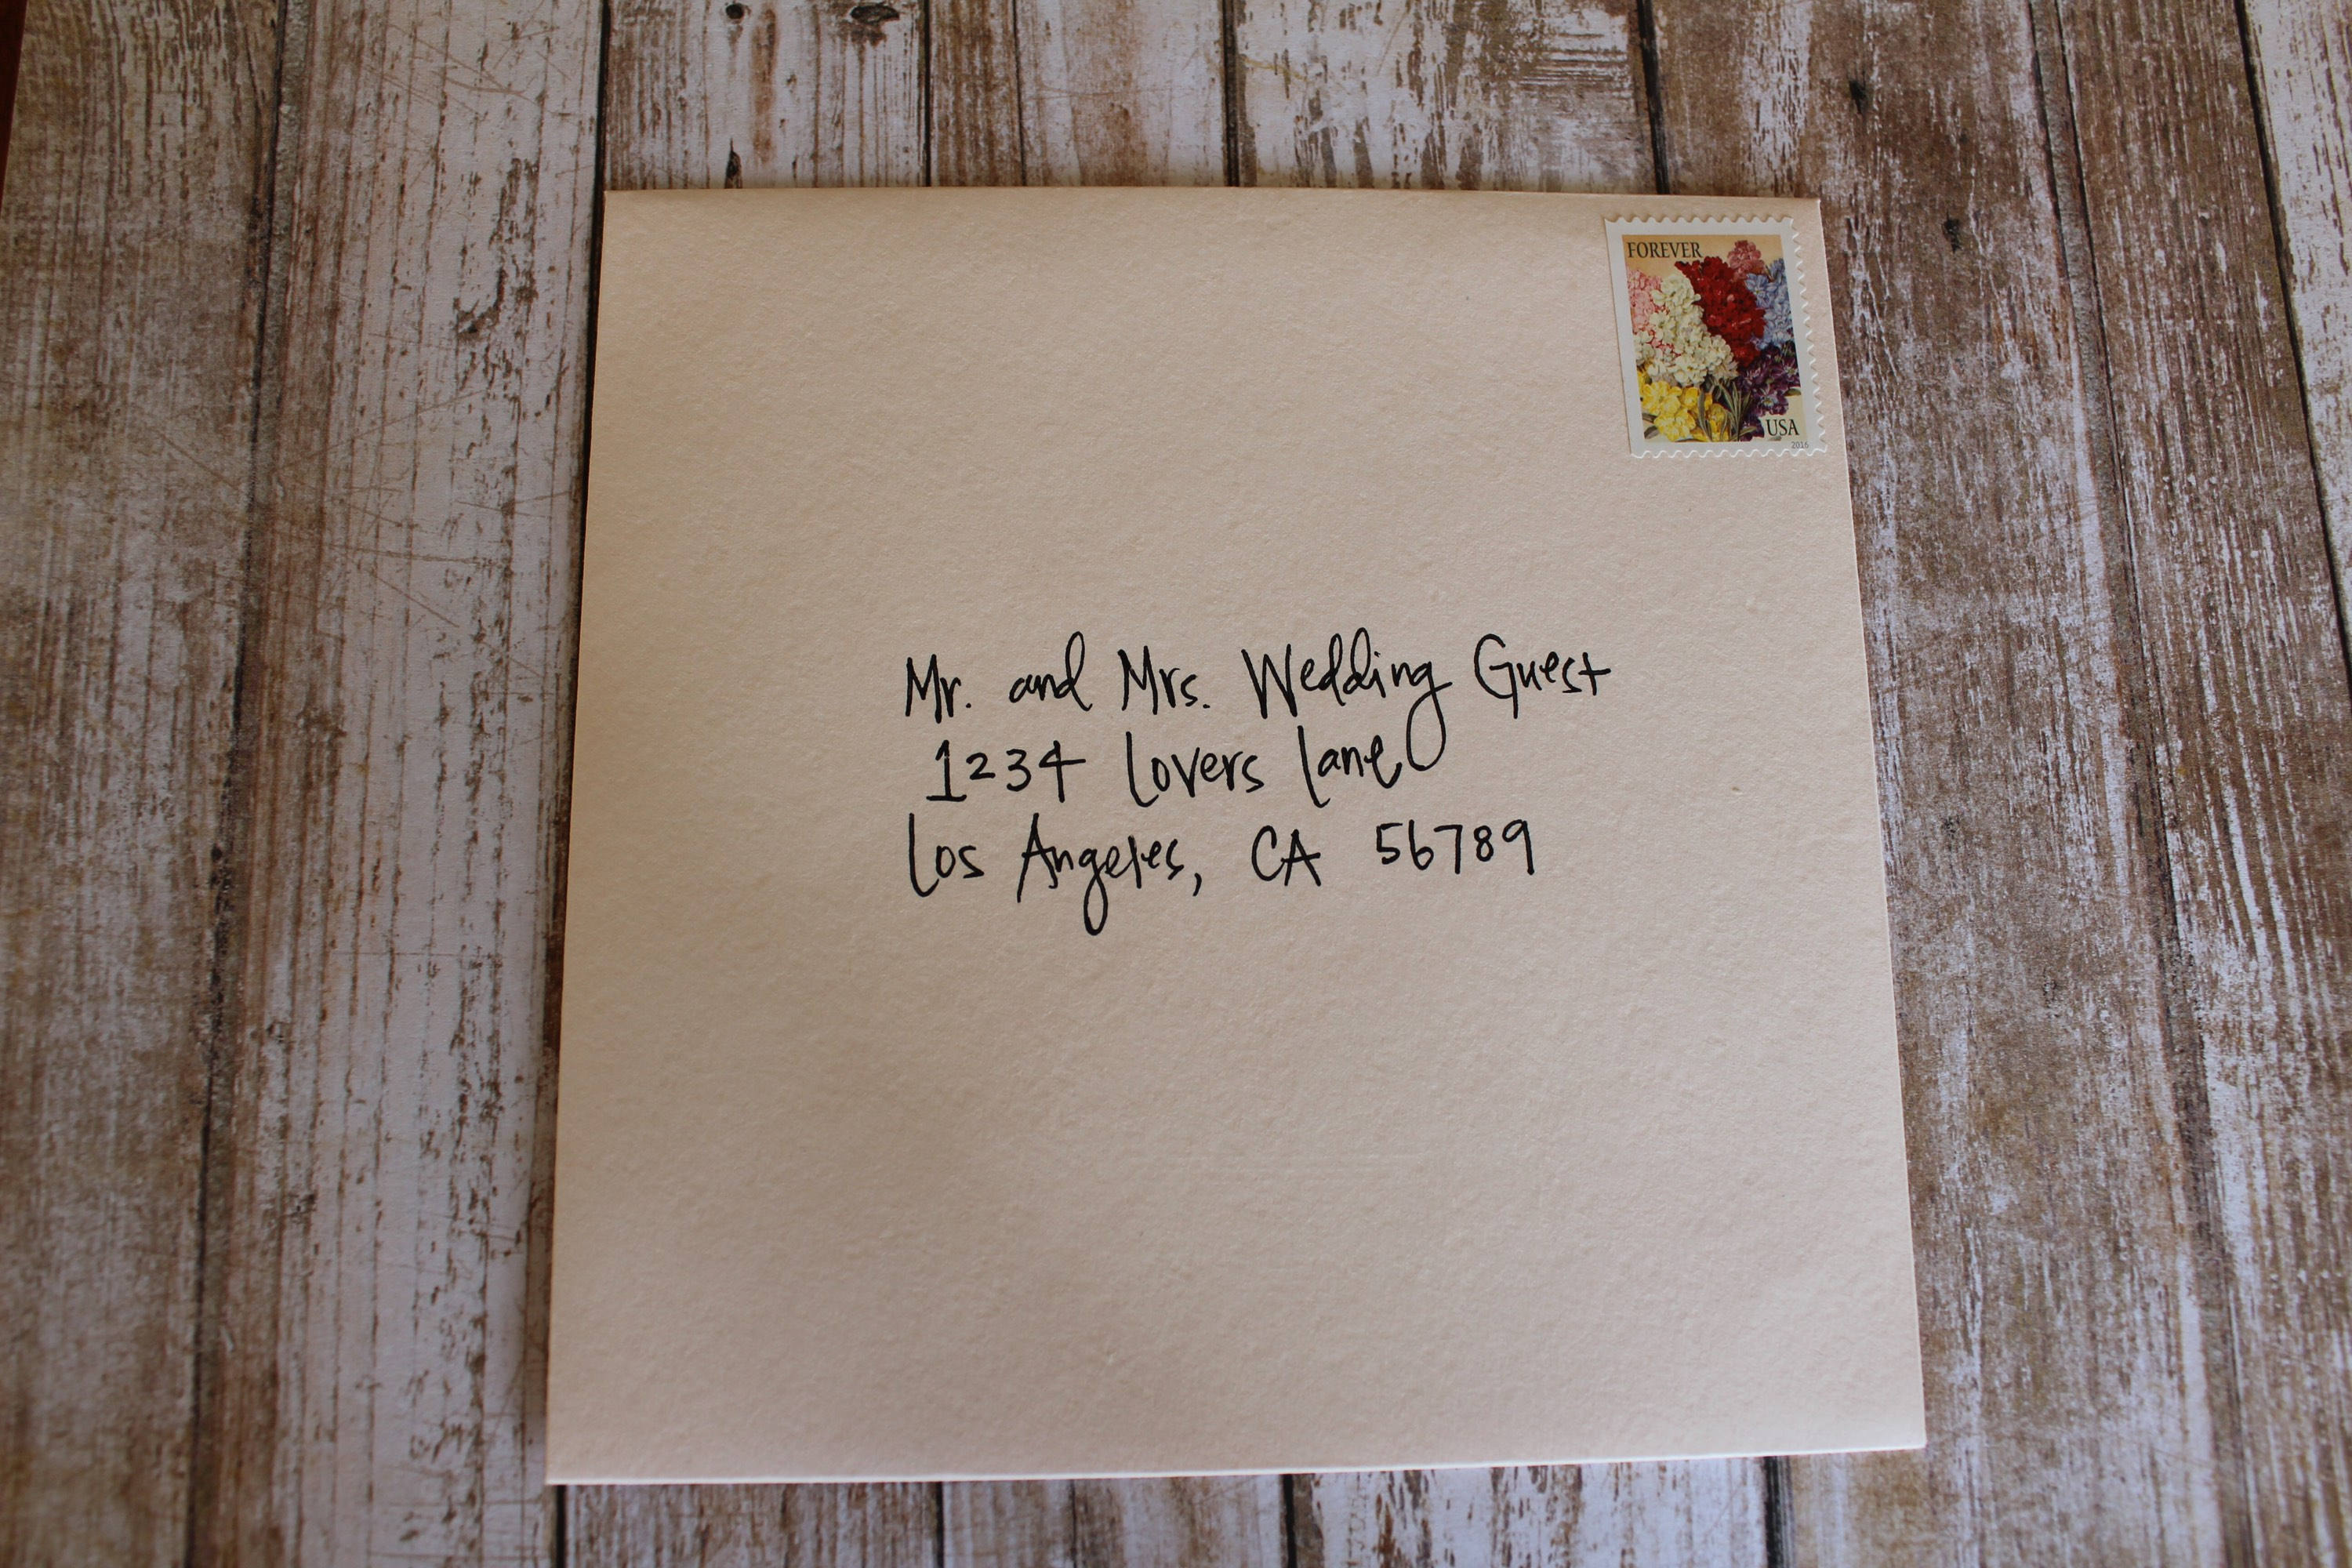 FOREVER
USA
2016
Mr. and Mrs. Wedding Guest
1234 Lovers Lane
Los Angeles, CA 56789